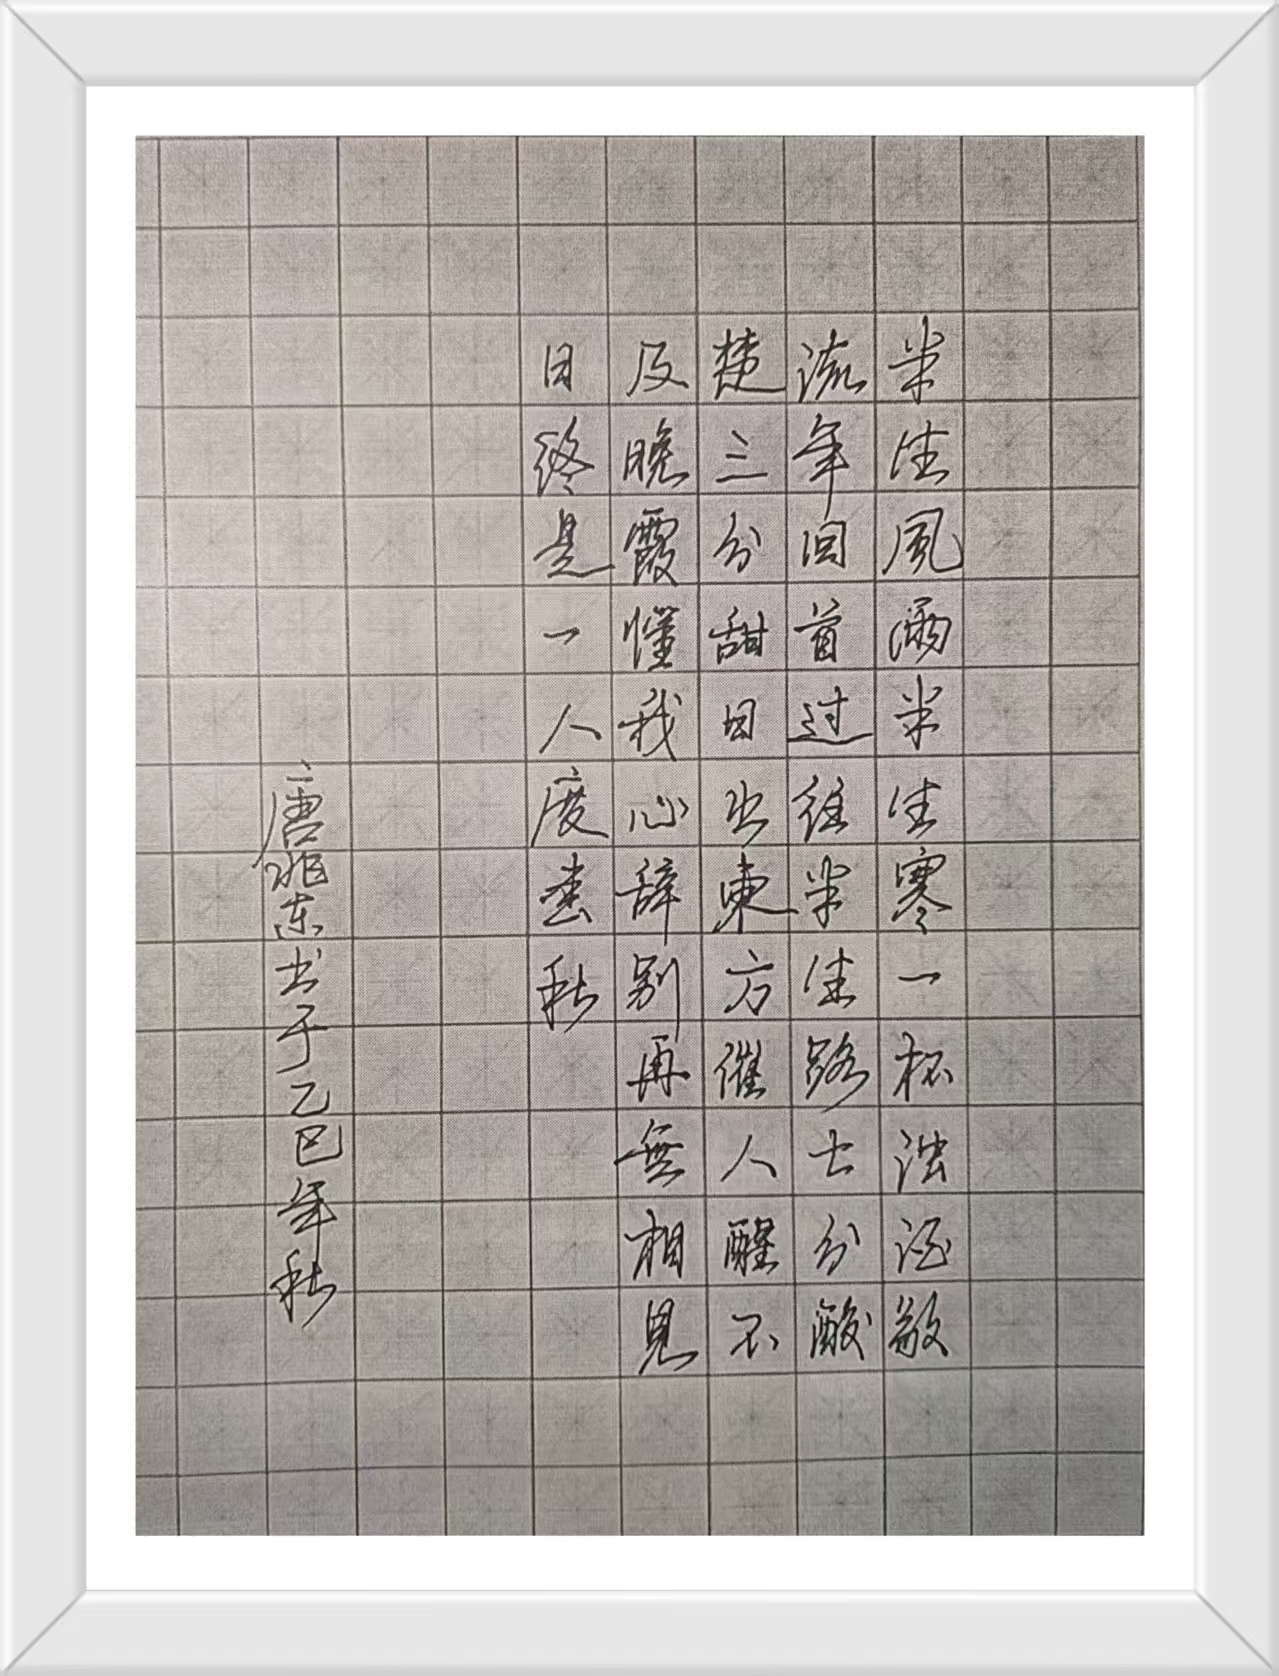 半生風雨半生寒一杯浊酒敬
流年回首过往半生路七分酸
楚三分甜日出東方催人醒不
及晚霞懂我心辞别再無相見
日终是一人度春秋
唐东书于乙巳年秋